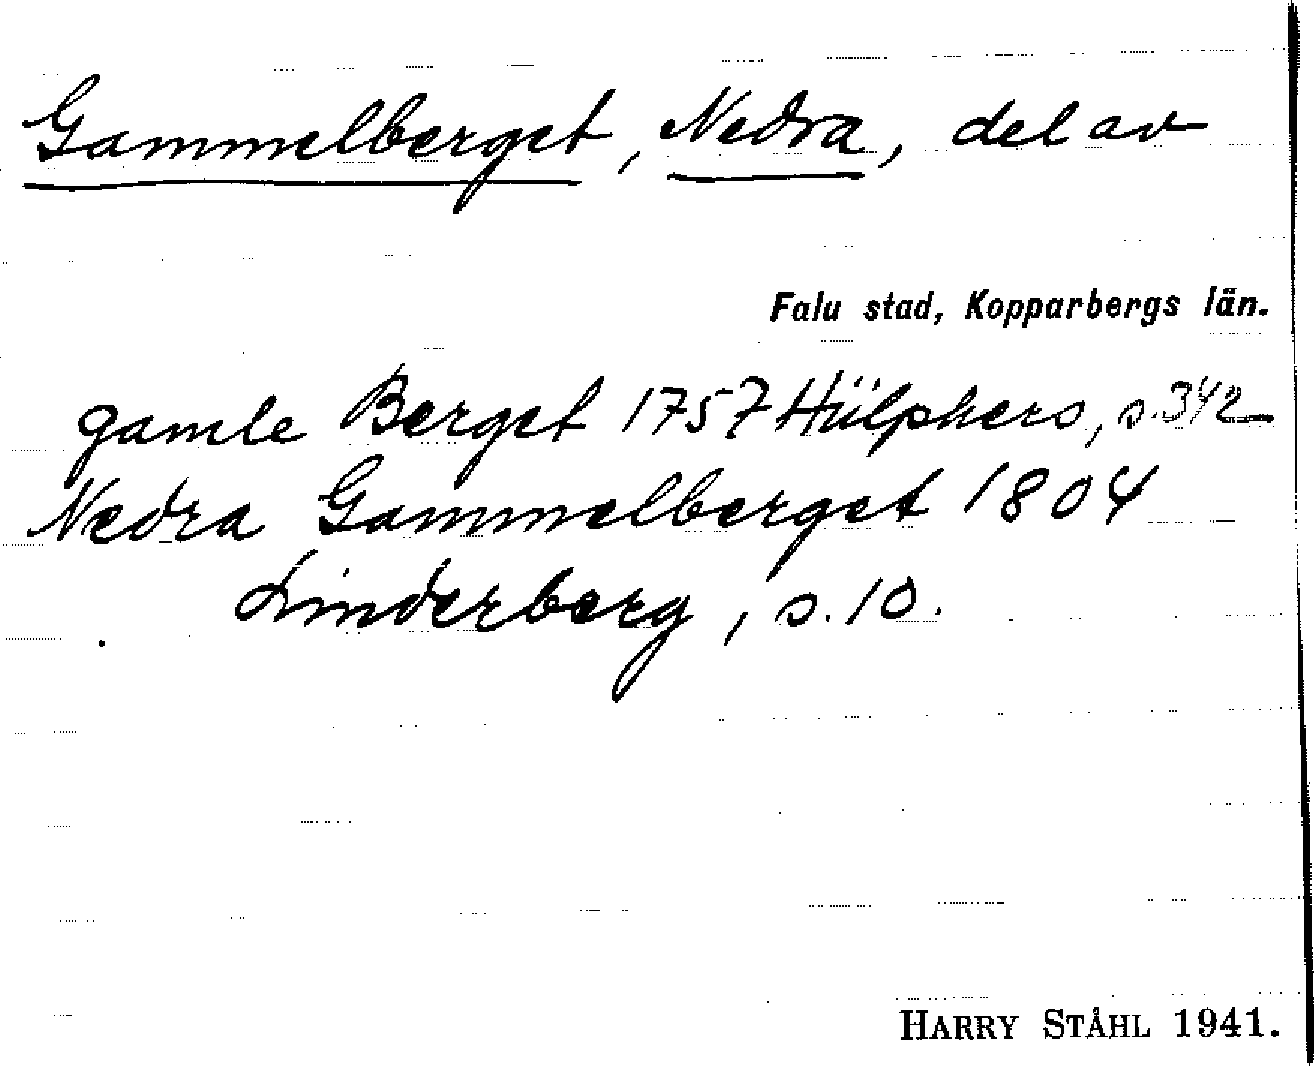 Gammelberget, Nedra, del av
Falu stad, Kopparbergs län.
gamle Berget 1757 Hülphers, s. 342
Nedra Gammelberget 1804
Linderberg, s. 10.
HARRY STÅHL 1941.